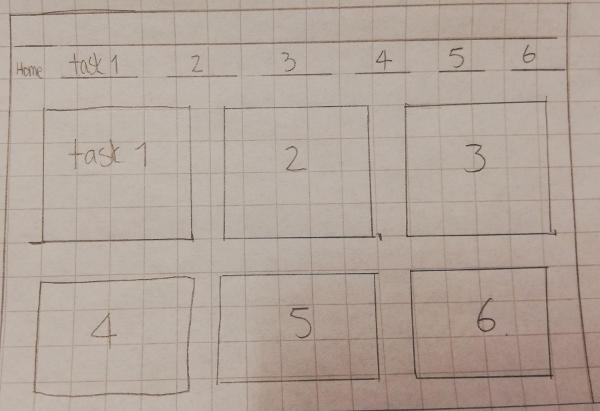 Home task 1 2 3 4 5 6
task 1 2 3
4 5 6.